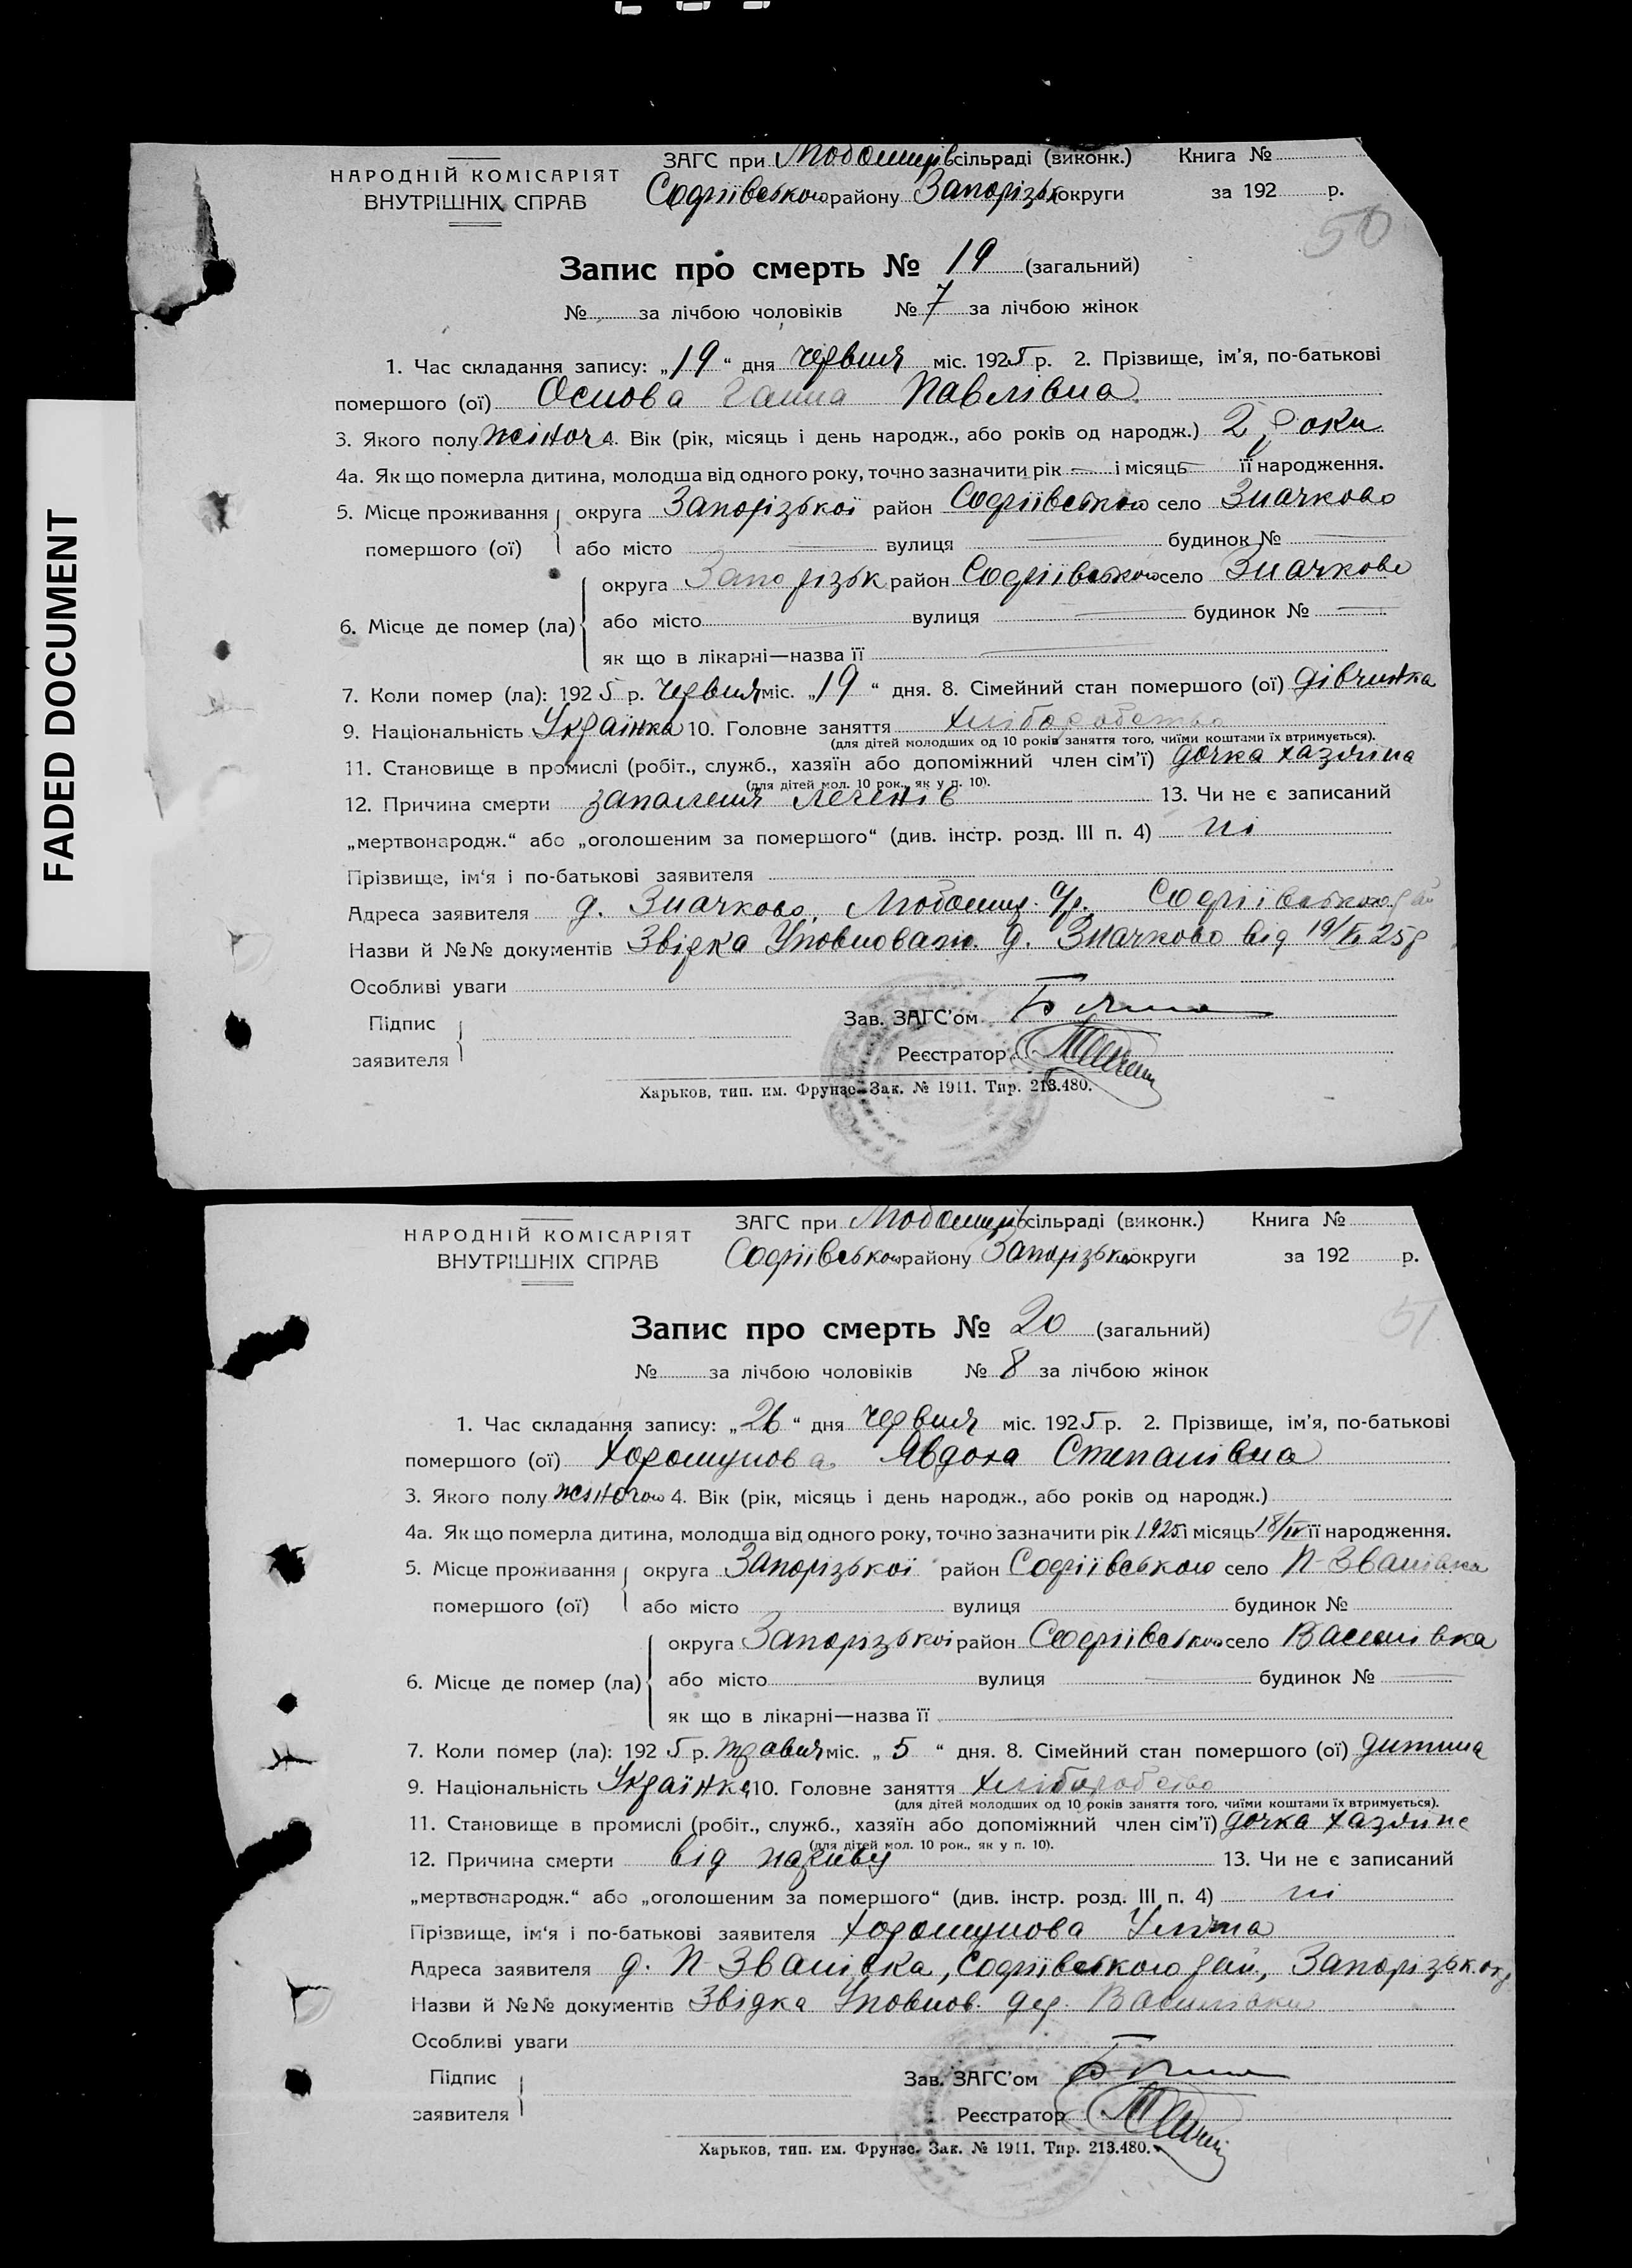 FADED DOCUMENT
НАРОДНІЙ КОМІСАРІЯТ
ВНУТРІШНІХ СПРАВ
ЗАГС при Любомирів сільраді (виконк.) Книга №
Софіївського району Запорізьк округи за 192 р.
50
Запис про смерть № 19 (загальний)
№ за лічбою чоловіків № 7 за лічбою жінок
1. Час складання запису: „19“ дня червня міс. 1925 р. 2. Прізвище, ім’я, по-батькові
помершого (ої) Основа Ганна Павлівна
3. Якого полу жіноч 4. Вік (рік, місяць і день народж., або років од народж.) 2 роки
4а. Як що померла дитина, молодша від одного року, точно зазначити рік — і місяць — її народження.
5. Місце проживання помершого (ої) округа Запорізької район Софіївського село Значково
або місто вулиця будинок №
6. Місце де помер (ла) округа Запорізьк район Софіївського село Значкове
або місто вулиця будинок №
як що в лікарні—назва її
7. Коли помер (ла): 1925 р. червня міс. „19“ дня. 8. Сімейний стан помершого (ої) дівчинка
9. Національність Українка 10. Головне заняття хліборобство
(для дітей молодших од 10 років заняття того, чиїми коштами їх втримується).
11. Становище в промислі (робіт., служб., хазяїн або допоміжний член сім’ї) дочка хазяїна
(для дітей мол. 10 рок., як у п. 10).
12. Причина смерти запалення легенів 13. Чи не є записаний
„мертвонародж.“ або „оголошеним за помершого“ (див. інстр. розд. III п. 4) ні
Прізвище, ім‘я і по-батькові заявителя
Адреса заявителя д. Значково, Любомир. с/р. Софіївського рай
Назви й №№ документів Звідка Уповноваж. д. Значково від 19/VI 25 р
Особливі уваги
Підпис заявителя
Зав. ЗАГС’ом
Реєстратор
Харьков, тип. им. Фрунзе. Зак. № 1911. Тир. 213.480.
НАРОДНІЙ КОМІСАРІЯТ
ВНУТРІШНІХ СПРАВ
ЗАГС при Любомирів сільраді (виконк.) Книга №
Софіївського району Запорізької округи за 192 р.
51
Запис про смерть № 20 (загальний)
№ за лічбою чоловіків № 8 за лічбою жінок
1. Час складання запису: „26“ дня червня міс. 1925 р. 2. Прізвище, ім’я, по-батькові
помершого (ої) Хорошунова Явдоха Степанівна
3. Якого полу жіночого 4. Вік (рік, місяць і день народж., або років од народж.)
4а. Як що померла дитина, молодша від одного року, точно зазначити рік 1925 і місяць 18/IV її народження.
5. Місце проживання помершого (ої) округа Запорізької район Софіївського село П-Званівка
або місто вулиця будинок №
6. Місце де помер (ла) округа Запорізької район Софіївського село Василівка
або місто вулиця будинок №
як що в лікарні—назва її
7. Коли помер (ла): 1925 р. травня міс. „5“ дня. 8. Сімейний стан помершого (ої) дитина
9. Національність Українка 10. Головне заняття хліборобство
(для дітей молодших од 10 років заняття того, чиїми коштами їх втримується).
11. Становище в промислі (робіт., служб., хазяїн або допоміжний член сім’ї) дочка хазяїне
(для дітей мол. 10 рок., як у п. 10).
12. Причина смерти від 13. Чи не є записаний
„мертвонародж.“ або „оголошеним за помершого“ (див. інстр. розд. III п. 4) ні
Прізвище, ім‘я і по-батькові заявителя Хорошунова
Адреса заявителя д. П-Званівка, Софіївського рай, Запорізьк. окр
Назви й №№ документів Звідка Уповнов. дер. Василівки
Особливі уваги
Підпис заявителя
Зав. ЗАГС’ом
Реєстратор
Харьков, тип. им. Фрунзе. Зак. № 1911. Тир. 213.480.